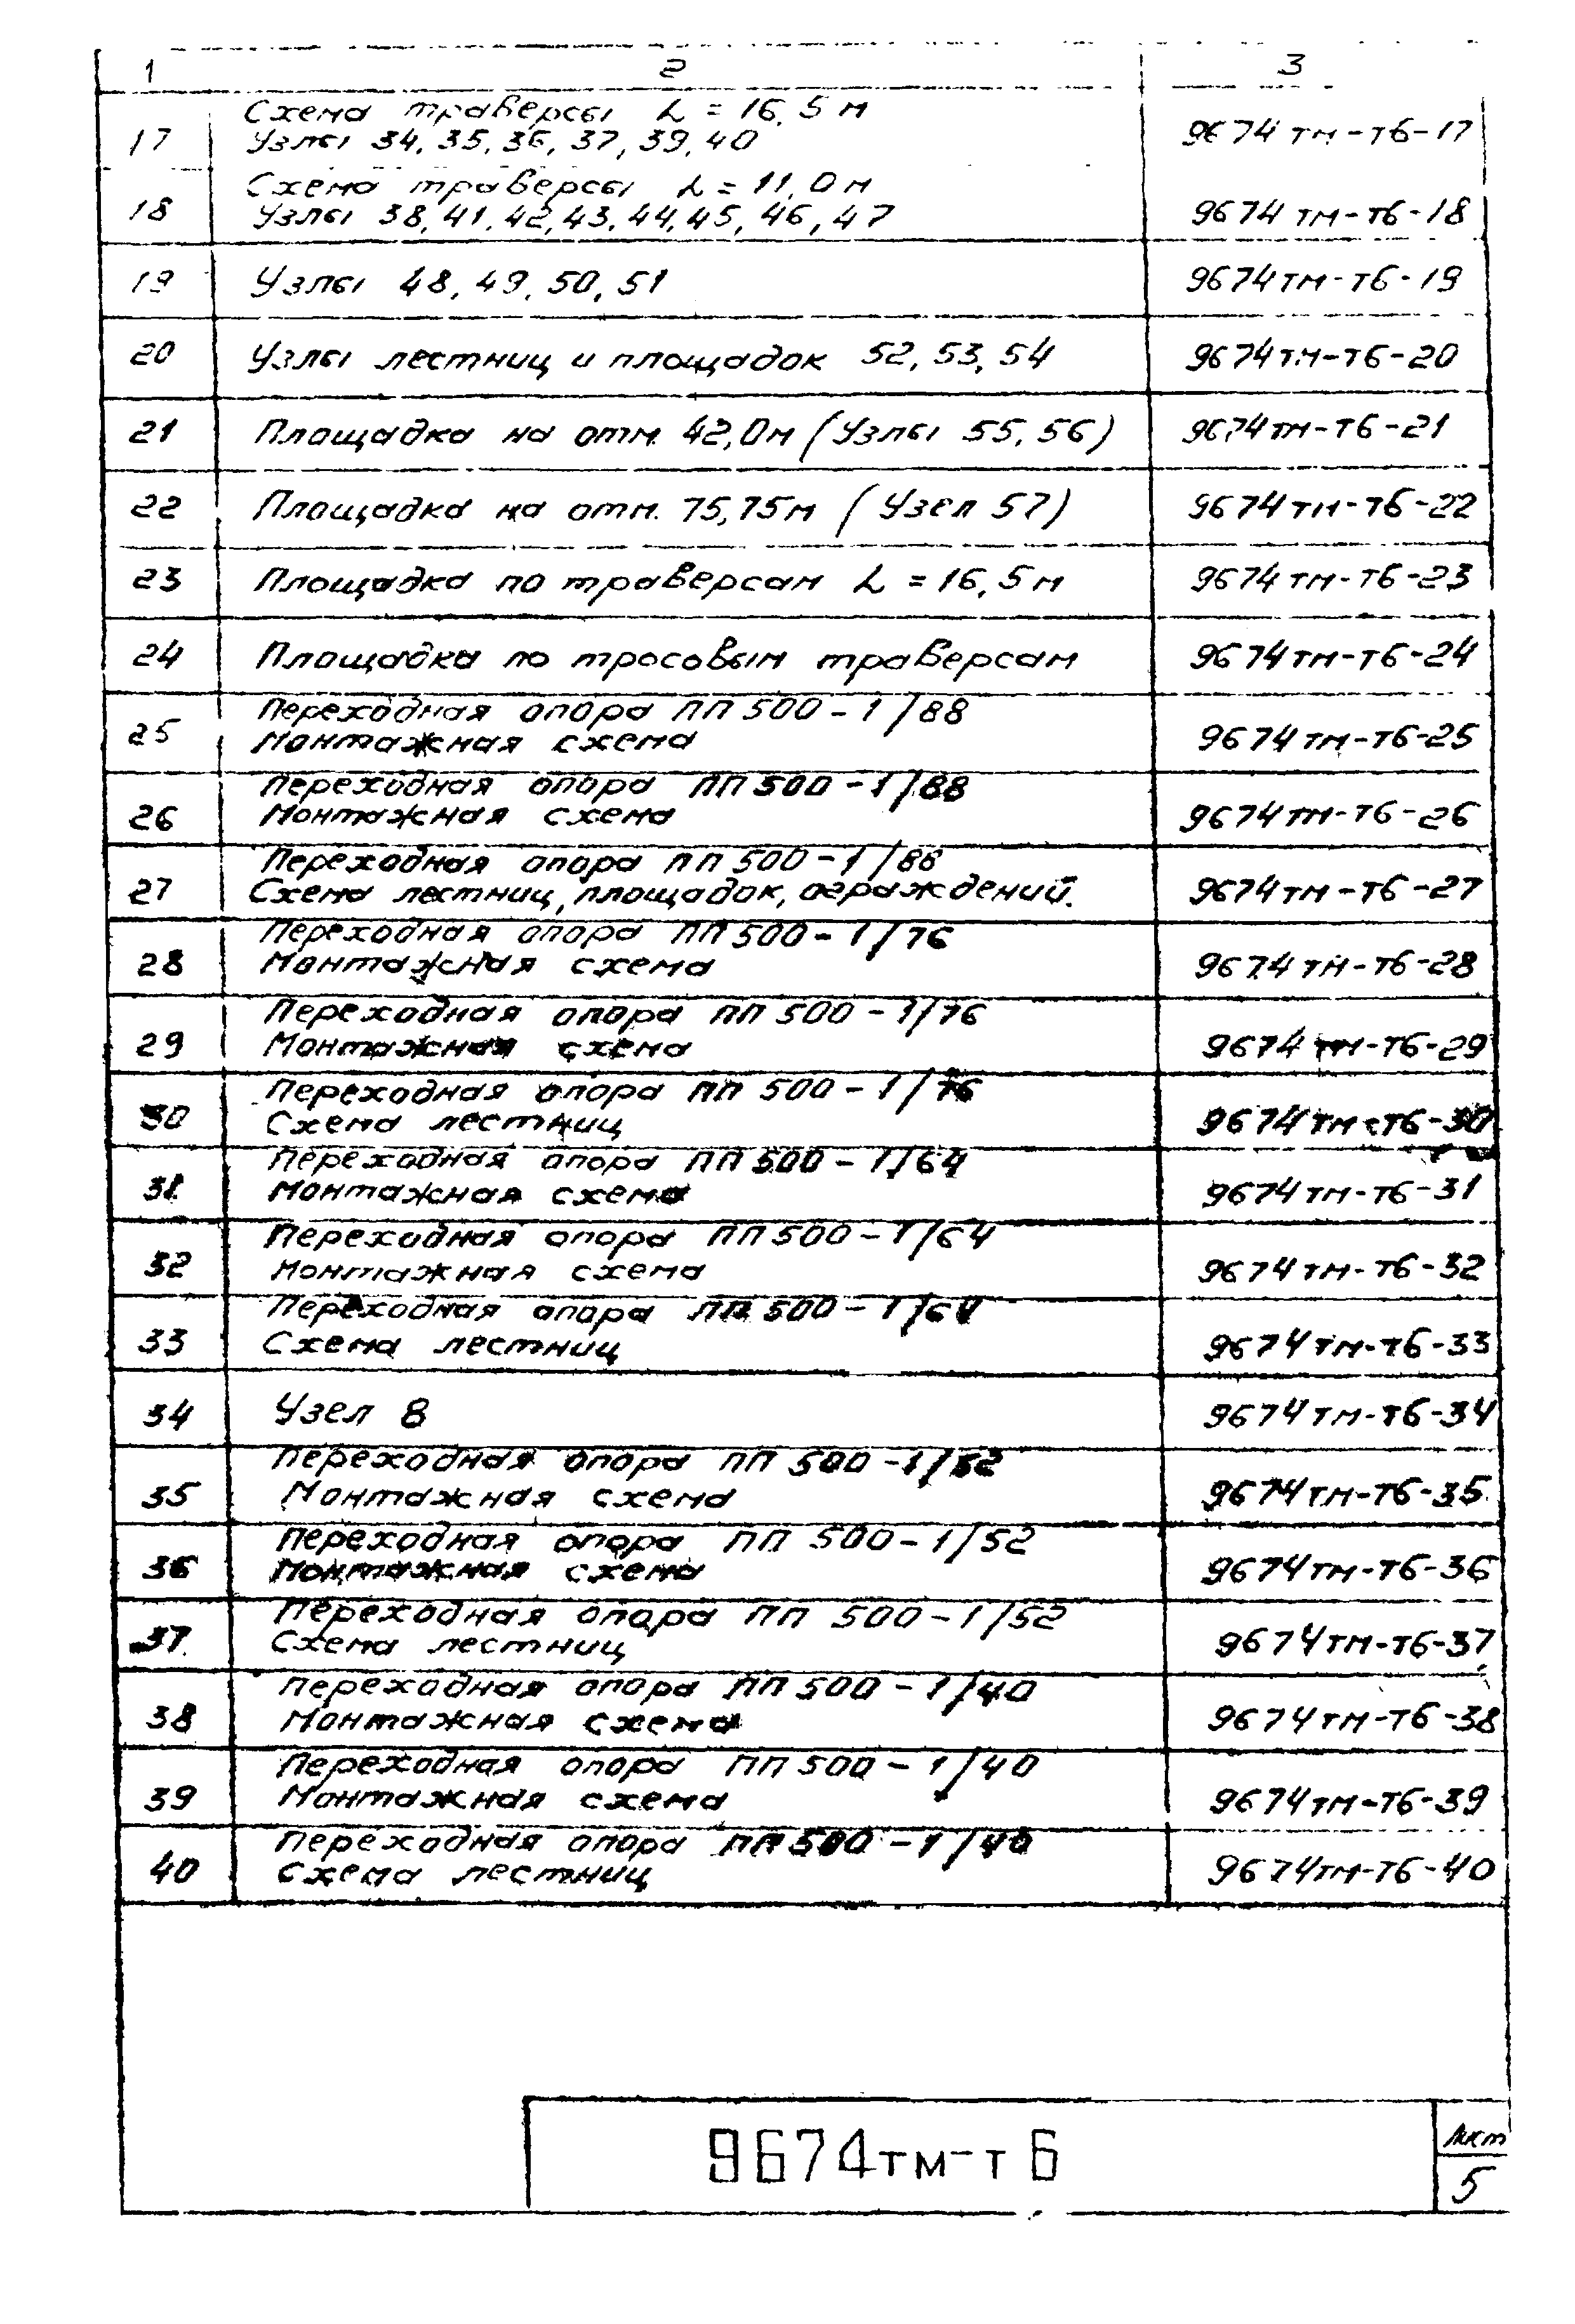 1 2 3
Схема траверсы L = 16,5 м
17 Узлы 34, 35, 36, 37, 39, 40 9674тм-т6-17
Схема траверсы L = 11,0 м
18 Узлы 38, 41, 42, 43, 44, 45, 46, 47 9674тм-т6-18
19 Узлы 48, 49, 50, 51 9674тм-т6-19
20 Узлы лестниц и площадок 52, 53, 54 9674тм-т6-20
21 Площадка на отм. 42,0м (Узлы 55, 56) 9674тм-т6-21
22 Площадка на отм. 75,75м (Узел 57) 9674тм-т6-22
23 Площадка по траверсам L = 16,5м 9674тм-т6-23
24 Площадка по тросовым траверсам 9674тм-т6-24
Переходная опора ПП 500-1/88
25 Монтажная схема 9674тм-т6-25
Переходная опора ПП 500-1/88
26 Монтажная схема 9674тм-т6-26
Переходная опора ПП 500-1/88
27 Схема лестниц, площадок, ограждений. 9674тм-т6-27
Переходная опора ПП 500-1/76
28 Монтажная схема 9674тм-т6-28
Переходная опора ПП 500-1/76
29 Монтажная схема 9674тм-т6-29
Переходная опора ПП 500-1/76
30 Схема лестниц 9674тм-т6-30
Переходная опора ПП 500-1/64
31 Монтажная схема 9674тм-т6-31
Переходная опора ПП 500-1/64
32 Монтажная схема 9674тм-т6-32
Переходная опора ПП 500-1/64
33 Схема лестниц 9674тм-т6-33
34 Узел 8 9674тм-т6-34
Переходная опора ПП 500-1/52
35 Монтажная схема 9674тм-т6-35
Переходная опора ПП 500-1/52
36 Монтажная схема 9674тм-т6-36
Переходная опора ПП 500-1/52
37 Схема лестниц 9674тм-т6-37
Переходная опора ПП 500-1/40
38 Монтажная схема 9674тм-т6-38
Переходная опора ПП 500-1/40
39 Монтажная схема 9674тм-т6-39
Переходная опора ПП 500-1/40
40 Схема лестниц 9674тм-т6-40
9674тм-т6
Лист
5